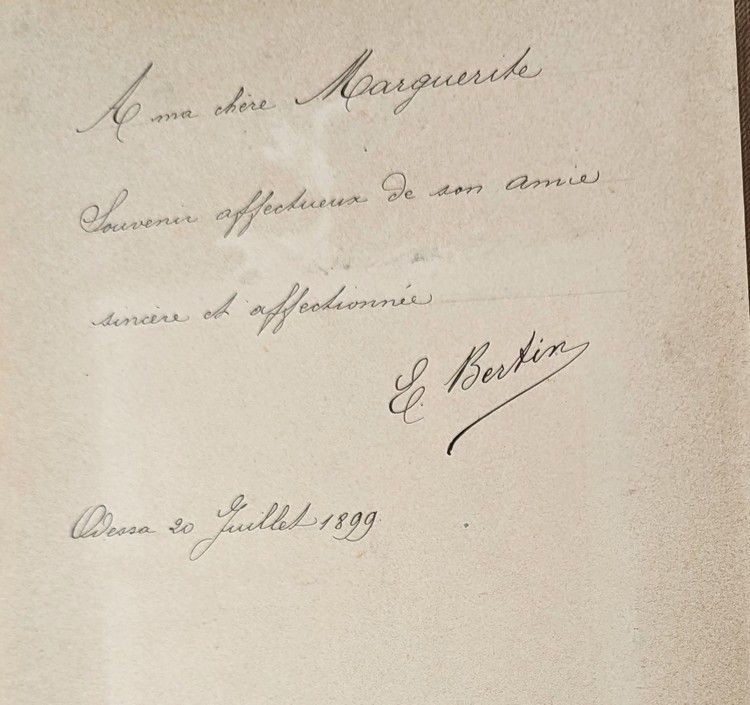 A ma chère Marguerite
Souvenir affectueux de son amie
sincère et affectionnée
E. Bertin
Odessa 20 Juillet 1899.